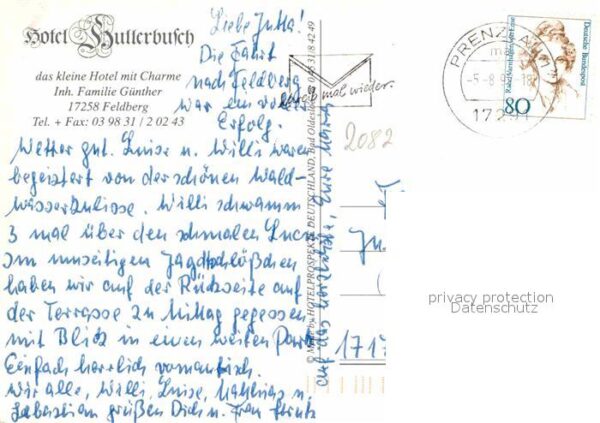 Hotel Hullerbusch
das kleine Hotel mit Charme
Inh. Familie Günther
17258 Feldberg
Tel. + Fax: 03 98 31 / 2 02 43
Liebe Jutta!
Die Fahrt
nach Feldberg
war ein voller
Erfolg.
Wetter gut. Luise u. Willi waren
begeistert von der schönen Wald-
wasserkulisse. Willi schwamm
3 mal über den schmalen Lucin
Im unseitigen Jagdschlößchen
haben wir auf der Rückseite auf
der Terrasse zu Mittag gegessen
mit Blick in einen weiten Park
Einfach herrlich romantisch.
Wir alle, Willi, Luise, Mathias u.
Sebastian grüßen Dich u. Frau
auf das herzlichste, Eure
HOTELPROSPEKTE DEUTSCHLAND, Bad Oldesloe
mal wieder.
PRENZLAU
17291
Deutsche Bundespost
80
2082
1717
privacy protection
Datenschutz